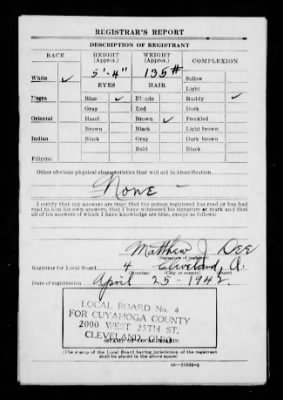 REGISTRAR'S REPORT
DESCRIPTION OF REGISTRANT
RACE HEIGHT (Approx.) WEIGHT (Approx.) COMPLEXION
White ✓ 5'-4" 135# Sallow
EYES HAIR Light
Negro Blue ✓ Blonde Ruddy ✓
Gray Red Dark
Oriental Hazel Brown ✓ Freckled
Brown Black Light brown
Indian Black Gray Dark brown
Bald Black
Filipino
Other obvious physical characteristics that will aid in identification
None
I certify that my answers are true; that the person registered has read or has had
read to him his own answers; that I have witnessed his signature or mark and that
all of his answers of which I have knowledge are true, except as follows:
Matthew J. Dee
(Signature of registrar)
Registrar for Local Board 4 Cleveland, O.
Date of registration April 25-1942
LOCAL BOARD No. 4
FOR CUYAHOGA COUNTY
2000 WEST 25TH ST.
CLEVELAND, OHIO
(STAMP OF LOCAL BOARD)
(The stamp of the Local Board having jurisdiction of the registrant
shall be placed in the above space)